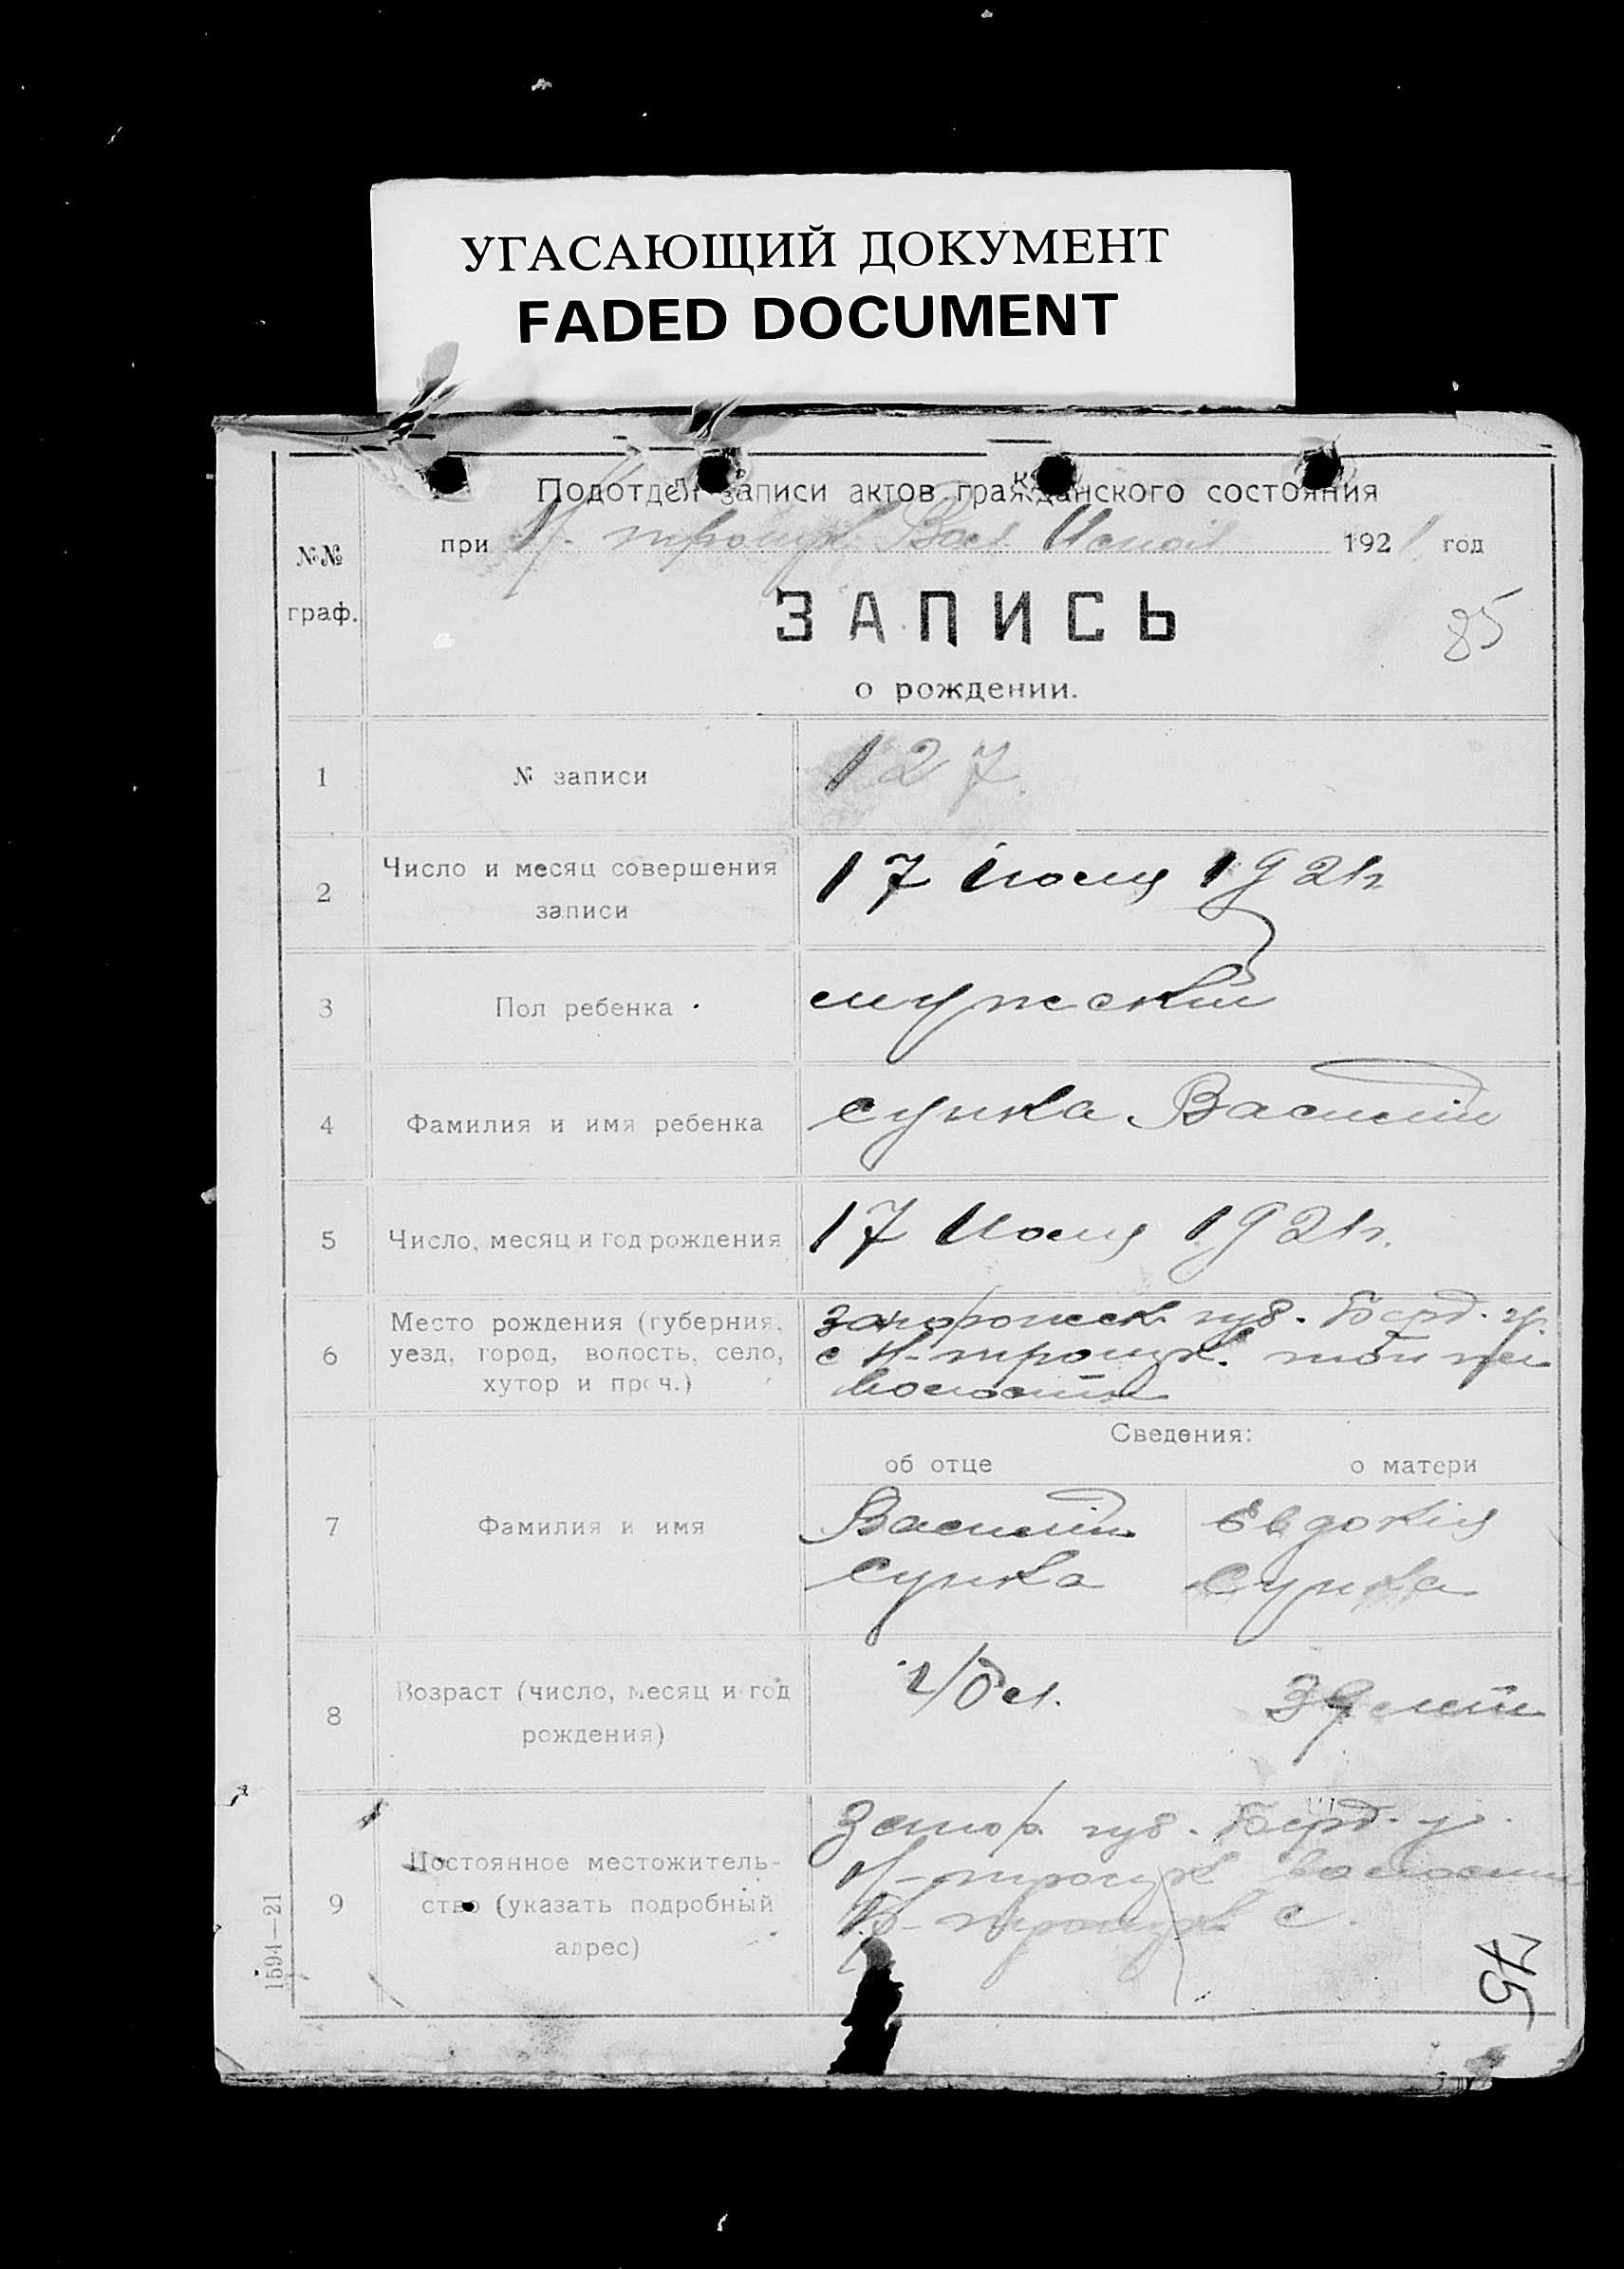 УГАСАЮЩИЙ ДОКУМЕНТ
FADED DOCUMENT
Подотдел записи актов гражданского состояния
при Н. троицк. Вол. 1921 год
№№
граф.
ЗАПИСЬ
85
о рождении.
1 № записи 127
2 Число и месяц совершения записи 17 Июля 1921 г
3 Пол ребенка мужский
4 Фамилия и имя ребенка Сучка Василий
5 Число, месяц и год рождения 17 Июля 1921 г.
6 Место рождения (губерния,
уезд, город, волость, село,
хутор и проч.)
запорожск. губ. Берд. у.
с Н-троицк. той же
волости
Сведения:
об отце о матери
7 Фамилия и имя
Василий Евдокія
8 Возраст (число, месяц и год
рождения)
39 лет
9 Постоянное местожитель-
ство (указать подробный
адрес)
Запор. губ. Берд. у.
Н-троицк волости
троицк с.
75
1594—21